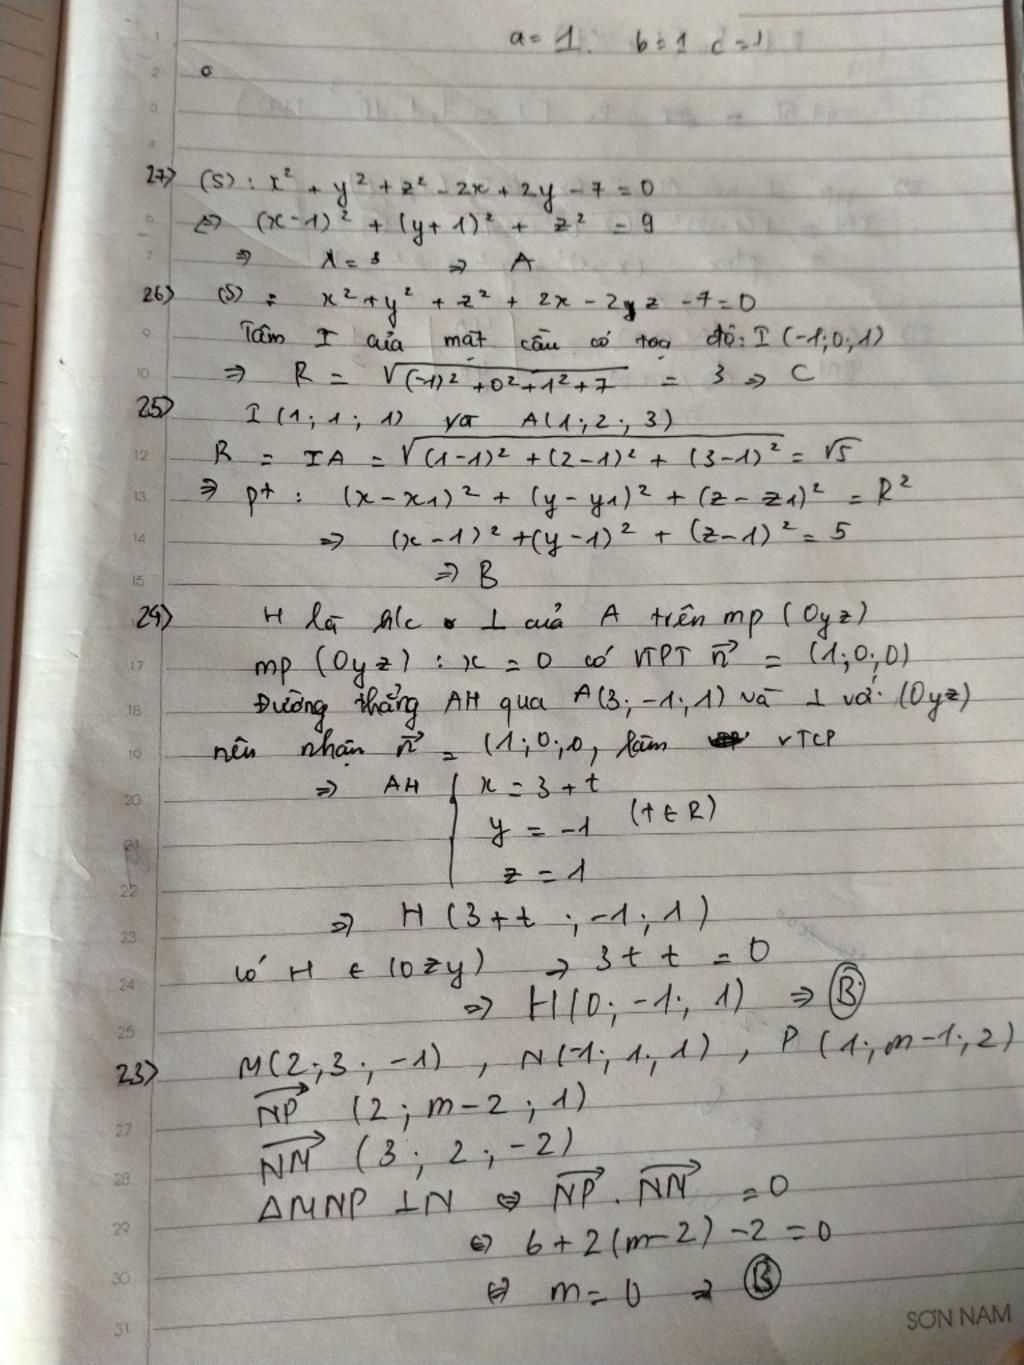 a = 1. b = 1 c = 1
27) (S): x² + y² + z² - 2x + 2y - 7 = 0
⇔ (x-1)² + (y+1)² + z² = 9
⇒ = 3 ⇒ A
26) (S) : x² + y² + z² + 2x - 2y z - 7 = 0
Tâm I của mặt cầu có toạ độ: I (-1; 0; 1)
⇒ R = √((-1)² + 0² + 1² + 7) = 3 ⇒ C
25) I (1; 1; 1) và A(1; 2; 3)
R = IA = √((1-1)² + (2-1)² + (3-1)²) = √5
⇒ pt : (x - x1)² + (y - y1)² + (z - z1)² = R²
⇒ (x - 1)² + (y - 1)² + (z - 1)² = 5
⇒ B
24) H là h/c ⊥ của A trên mp (Oyz)
mp (Oyz) : x = 0 có VTPT n⃗ = (1; 0; 0)
Đường thẳng AH qua A(3; -1; 1) và ⊥ với (Oyz)
nên nhận n⃗ = (1; 0; 0, làm VTCP
⇒ AH { x = 3 + t
y = -1 (t ∈ R)
z = 1
⇒ H (3 + t ; -1; 1)
có H ∈ (Ozy) ⇒ 3 + t = 0
⇒ H(0; -1; 1) ⇒ B
23) M(2; 3; -1) , N(-1; 1; 1) , P (1; m-1; 2)
NP⃗ (2; m-2; 1)
NM⃗ (3; 2; -2)
ΔMNP ⊥ N ⇔ NP⃗ . NM⃗ = 0
⇔ 6 + 2(m-2) - 2 = 0
⇔ m = 0 ⇒ B
SƠN NAM